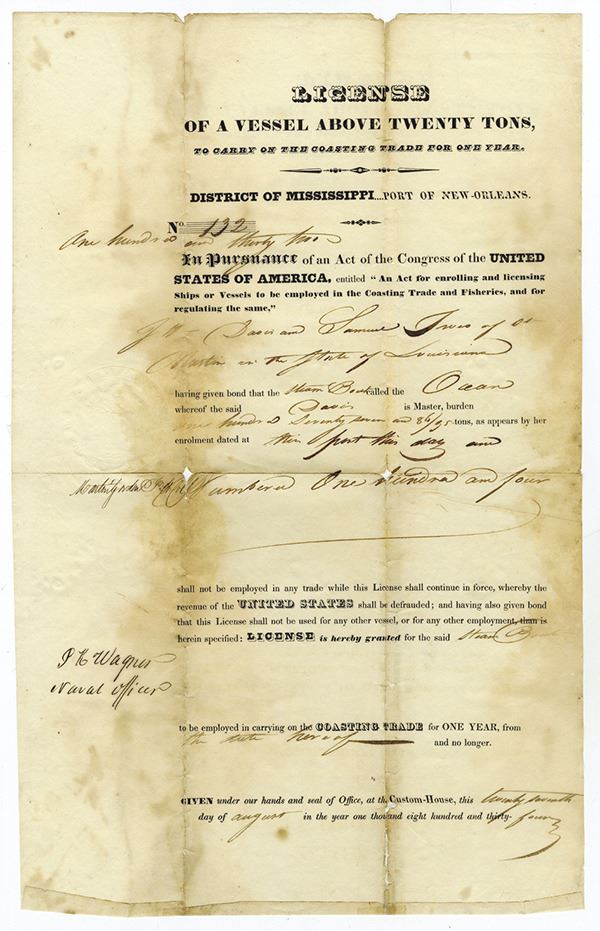 LICENSE
OF A VESSEL ABOVE TWENTY TONS,
TO CARRY ON THE COASTING TRADE FOR ONE YEAR.
DISTRICT OF MISSISSIPPI....PORT OF NEW-ORLEANS.
No. 132
One hundred and thirty two
In Pursuance of an Act of the Congress of the UNITED
STATES OF AMERICA, entitled “An Act for enrolling and licensing
Ships or Vessels to be employed in the Coasting Trade and Fisheries, and for
regulating the same,”
Davis and Samuel Ives of St
Martin in the State of Louisiana
having given bond that the Steam Boat called the Ocean
whereof the said Davis is Master, burden
one hundred Seventy seven and 86/95 tons, as appears by her
enrolment dated at this port this day and
Numbered One hundred and four
shall not be employed in any trade while this License shall continue in force, whereby the
revenue of the UNITED STATES shall be defrauded; and having also given bond
that this License shall not be used for any other vessel, or for any other employment, than is
herein specified: LICENSE is hereby granted for the said Steam Boat
P K Wagner
Naval officer
to be employed in carrying on the COASTING TRADE for ONE YEAR, from
the date hereof and no longer.
GIVEN under our hands and seal of Office, at the Custom-House, this twenty seventh
day of august in the year one thousand eight hundred and thirty-four